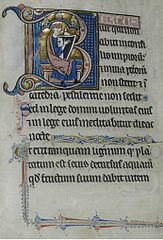 EATUS
uir qui non
abiit inconsi
lio impiorū &
in uia pctorū
non stetit & in
cathedra pestilentie non sedit
Sed in lege domini uoluntas eius
& in lege eius meditabitur die ac
nocte
Et erit tanquam lignum qd plā
tatum est secus decursus aquarum
qd fructum suum dabit in tem